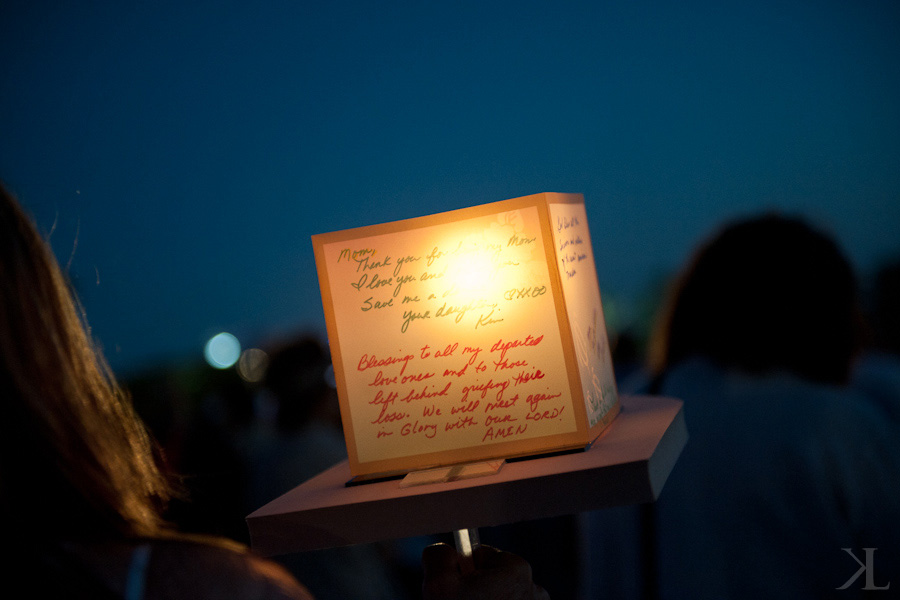 Mom,
Thank you for Mom
I love you and
Save me a
your daughter ♡XXOO
Kim
Blessings to all my departed
love ones and to those
left behind griefing their
loss. We will meet again
in Glory with our LORD!
AMEN
KL